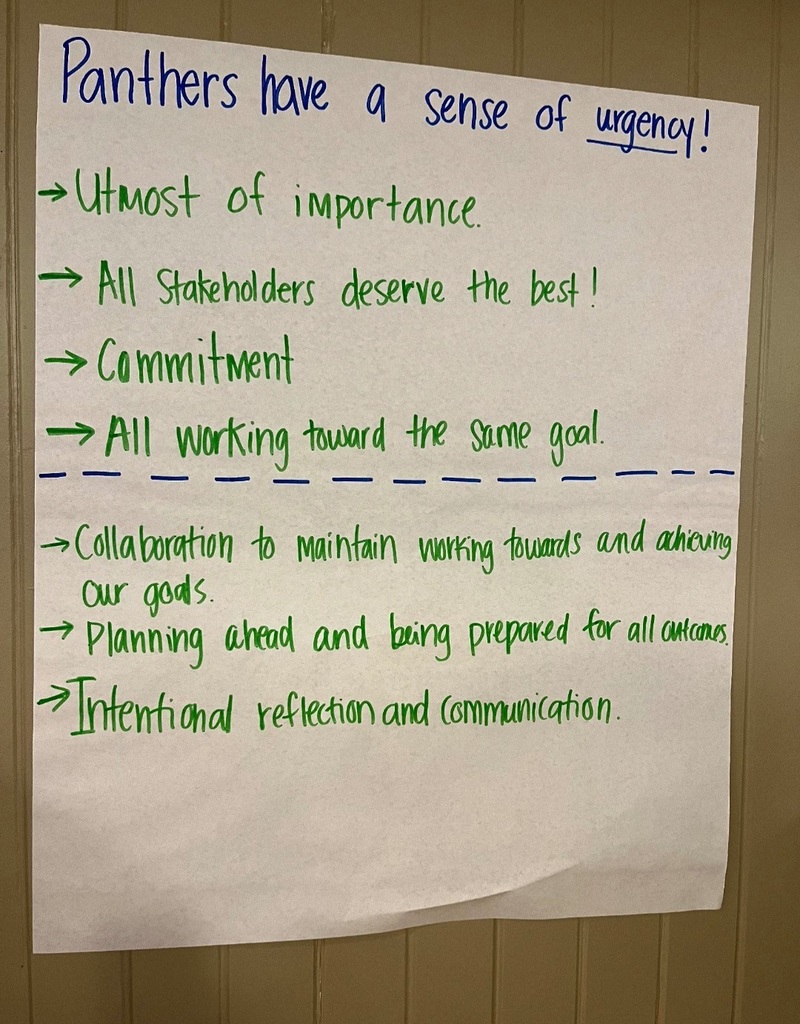 Panthers have a sense of urgency!
→ Utmost of importance.
→ All Stakeholders deserve the best!
→ Commitment
→ All working toward the same goal.
→ Collaboration to maintain working towards and achieving
our goals.
→ Planning ahead and being prepared for all outcomes.
→ Intentional reflection and communication.